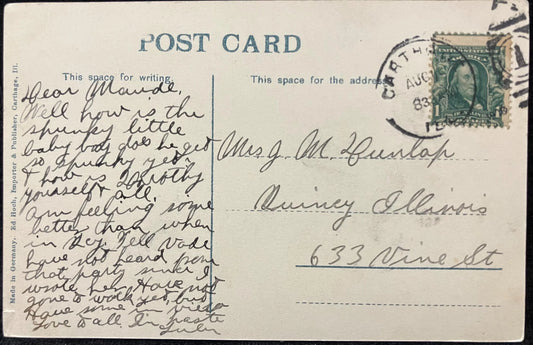 POST CARD
This space for writing.
This space for the address
Made in Germany. Ed Hoch, Importer & Publisher, Carthage, Ill.
Dear Maude,
Well how is the
spunky little
baby boy does he get
so spunky yet
& how is Dorothy
yourself & all.
Am feeling some
better than when
in Qcy. Tell Vade
have not heard from
that party since I
wrote her. Have not
gone to work yet, but
Have some in view
Love to all. In haste
CARTHA
AUG
UNITED STATES
Mrs J. M. Dunlap
Quincy Illinois
633 Vine St